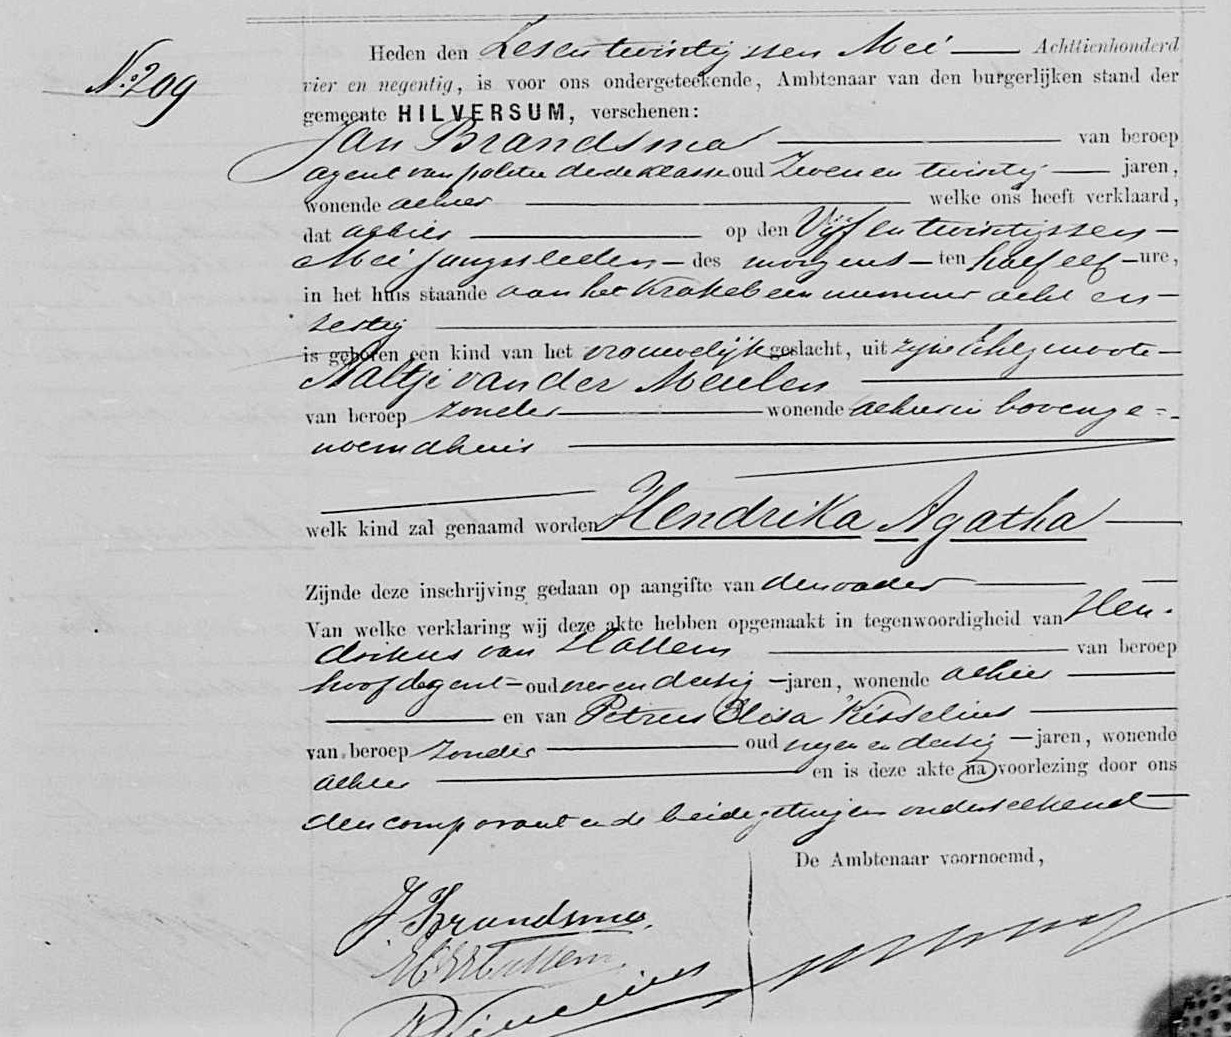 No. 209
Heden den Zesentwintigsten Mei Achttienhonderd
vier en negentig, is voor ons ondergeteekende, Ambtenaar van den burgerlijken stand der
gemeente HILVERSUM, verschenen:
Jan Brandsma van beroep
agent van politie derde klasse oud Zeven en twintig jaren,
wonende alhier welke ons heeft verklaard,
dat alhier op den Vijf en twintigsten
Mei jongstleden des morgens ten half elf ure,
in het huis staande aan het Krakebeen nummer acht en
zestig
is geboren een kind van het vrouwelijk geslacht, uit zijne Echtgenoote
Aaltje van der Meulen
van beroep zonder wonende alhier in bovenge=
noemd huis
welk kind zal genaamd worden Hendrika Agatha
Zijnde deze inschrijving gedaan op aangifte van den vader
Van welke verklaring wij deze akte hebben opgemaakt in tegenwoordigheid van Hen-
drikus van Hallem van beroep
hoofdagent oud en dertig jaren, wonende alhier
en van Petrus Elisa Kisselius
van beroep zonder oud negen en dertig jaren, wonende
alhier en is deze akte na voorlezing door ons
den comparant en de beide getuigen onderteekend
De Ambtenaar voornoemd,
J. Brandsma.